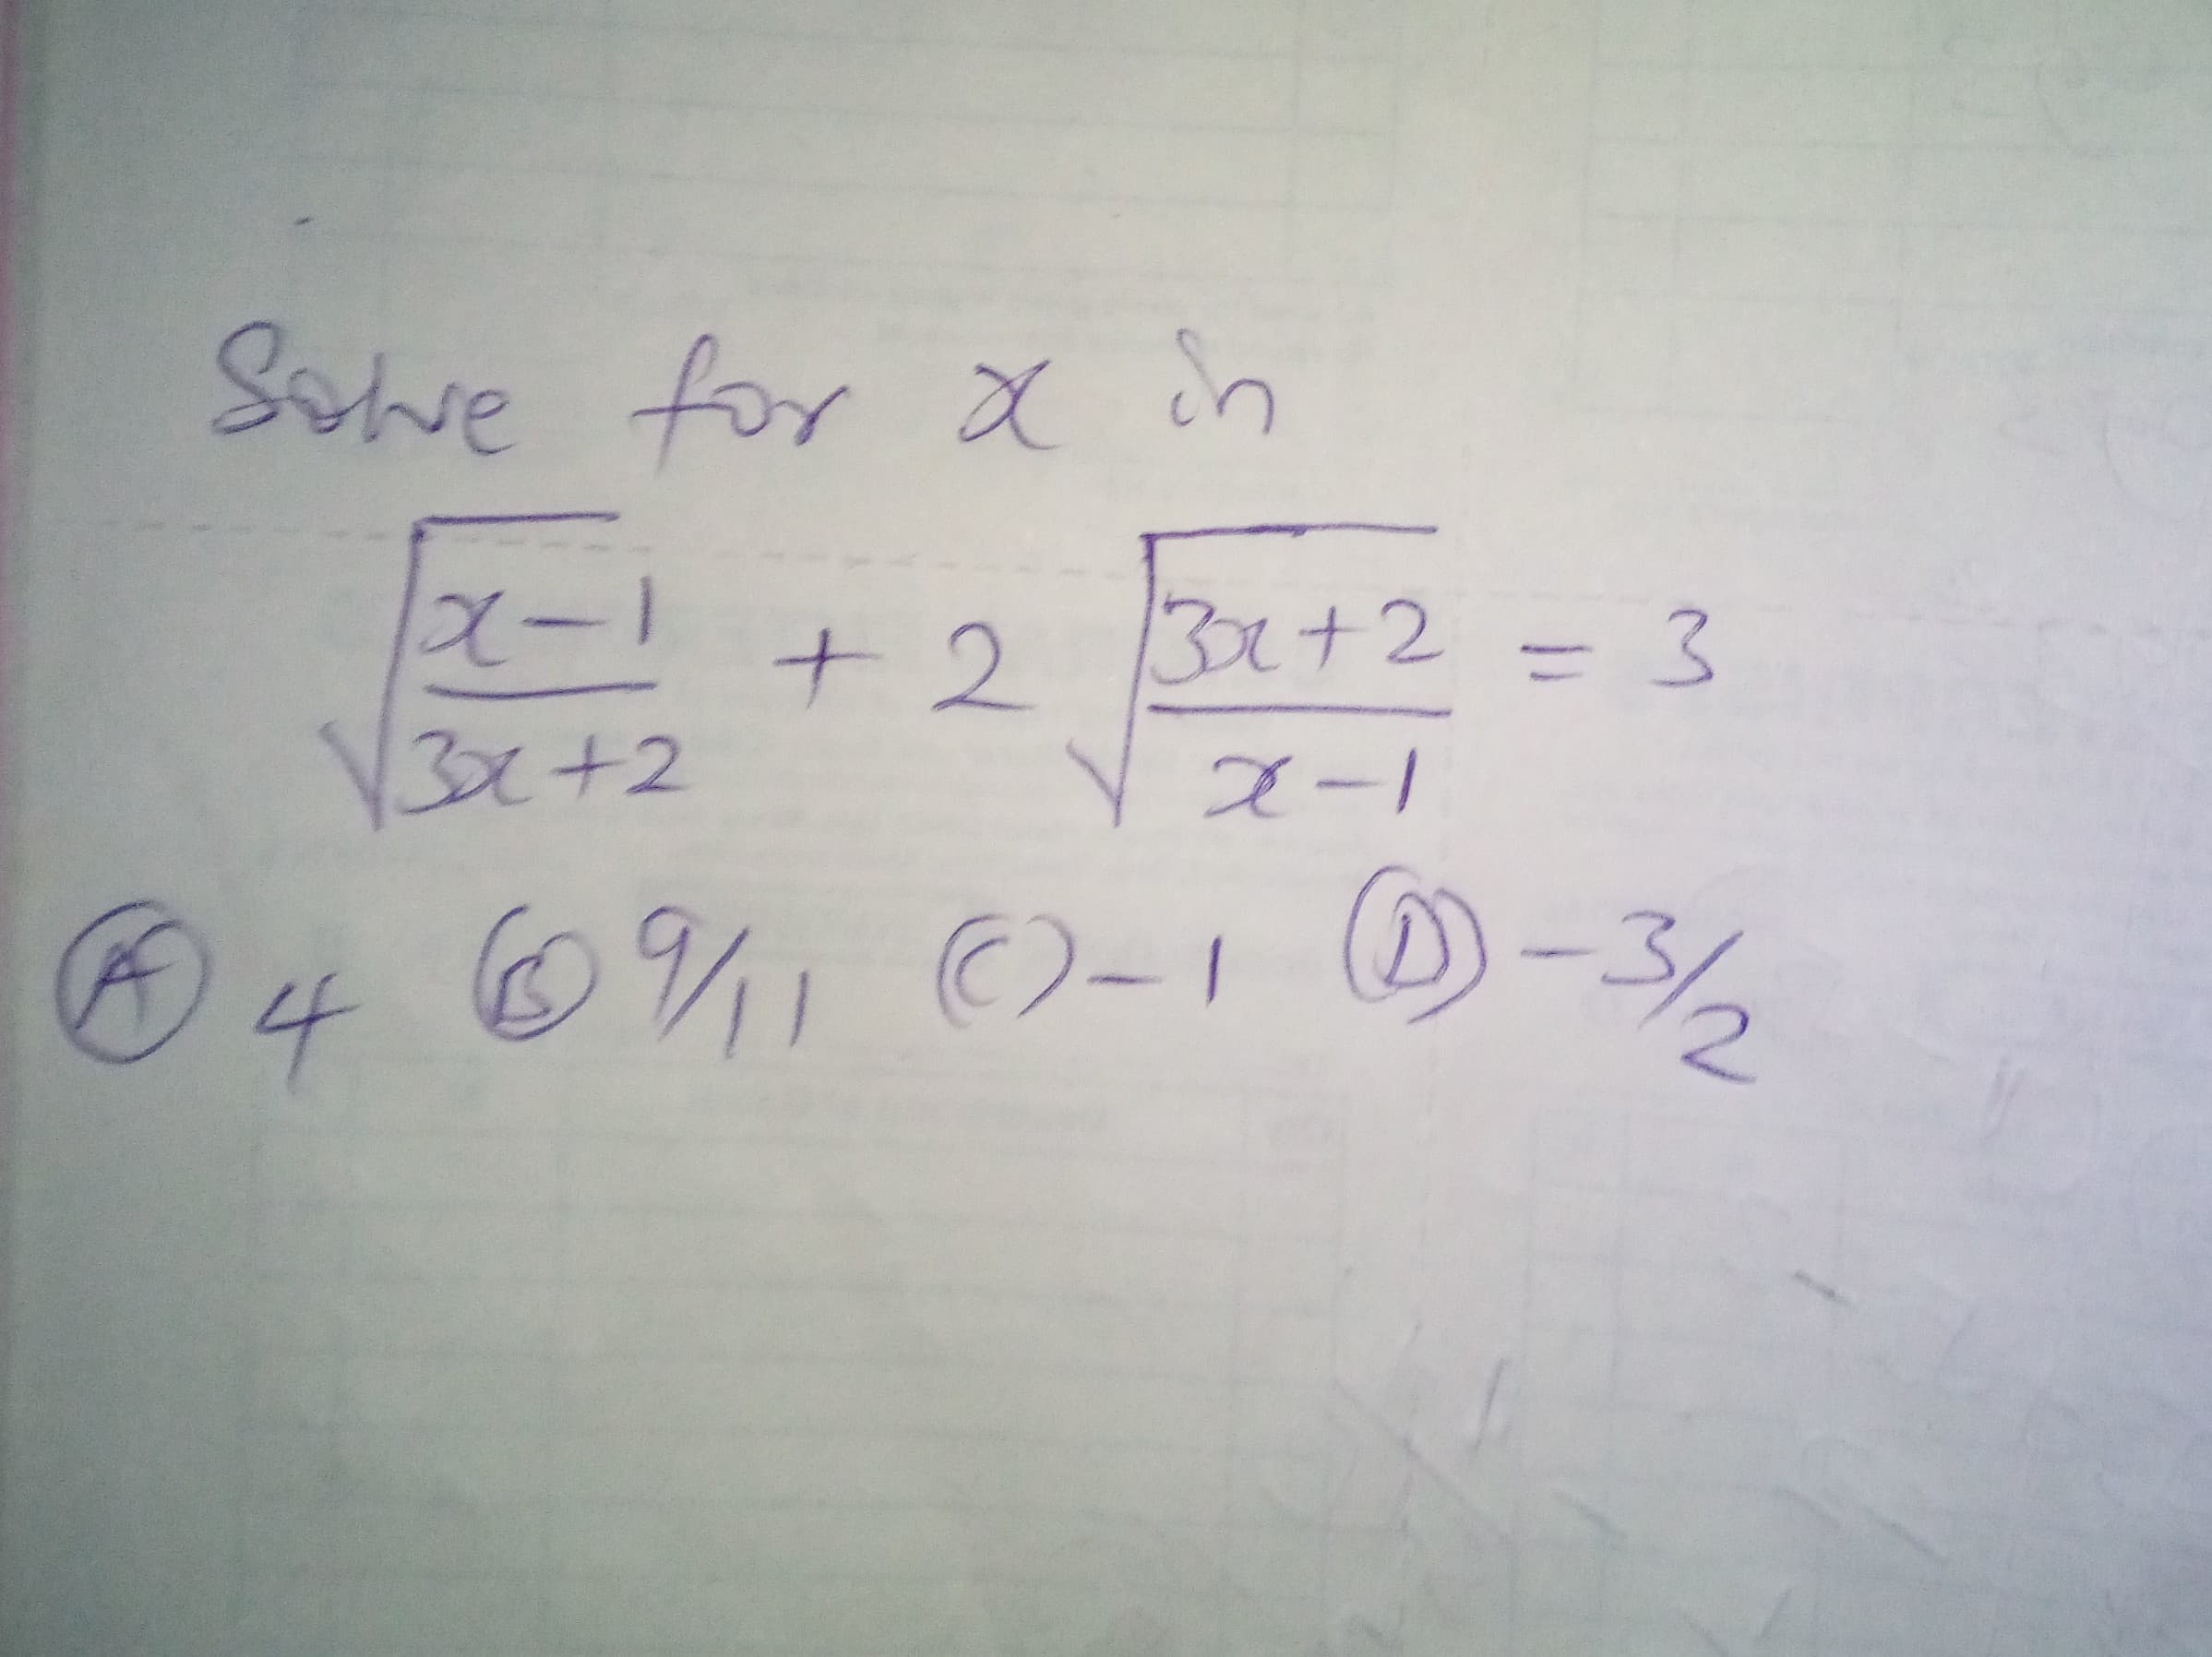 Solve for x in
√((x-1)/(3x+2)) + 2 √((3x+2)/(x-1)) = 3
(A) 4 (B) 9/11 (C) -1 (D) -3/2